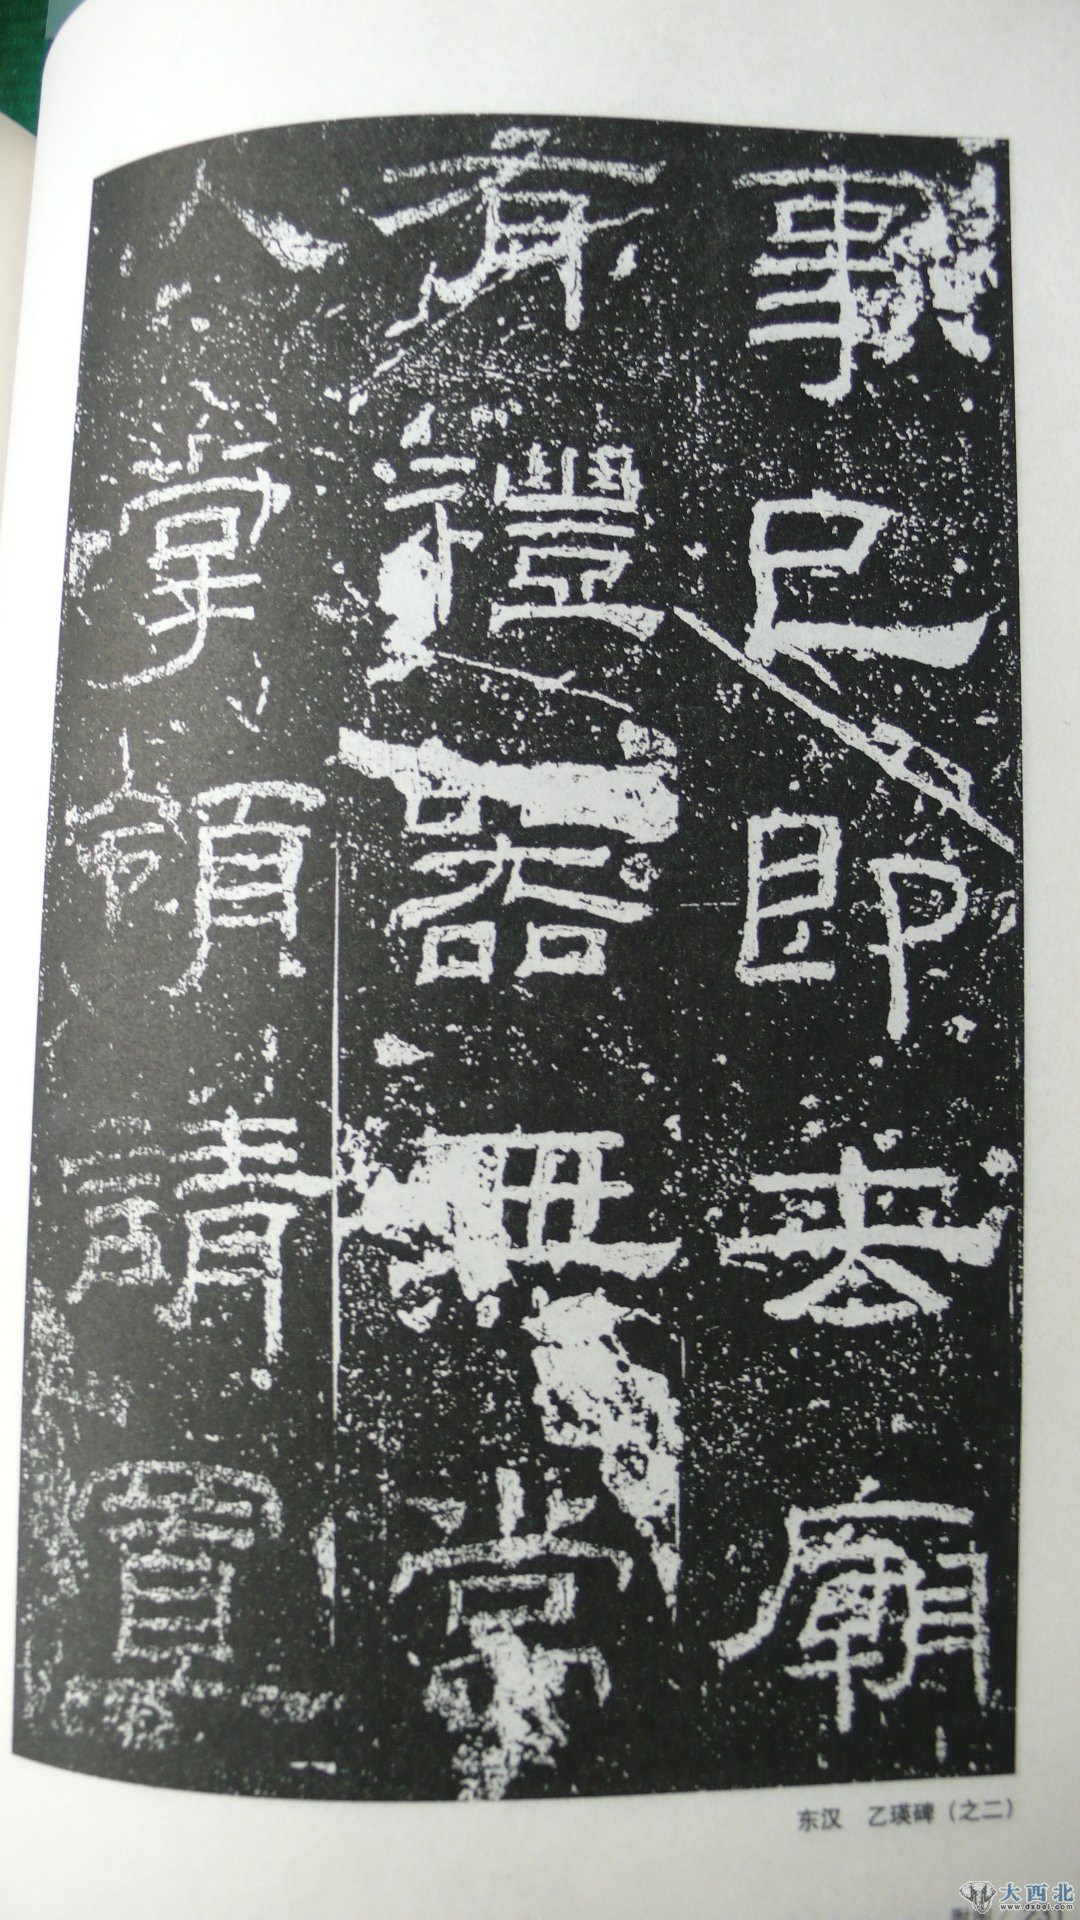 事已即去庙
有禮器無常
人掌領請置
东汉　乙瑛碑（之二）
大西北
www.dxbei.com